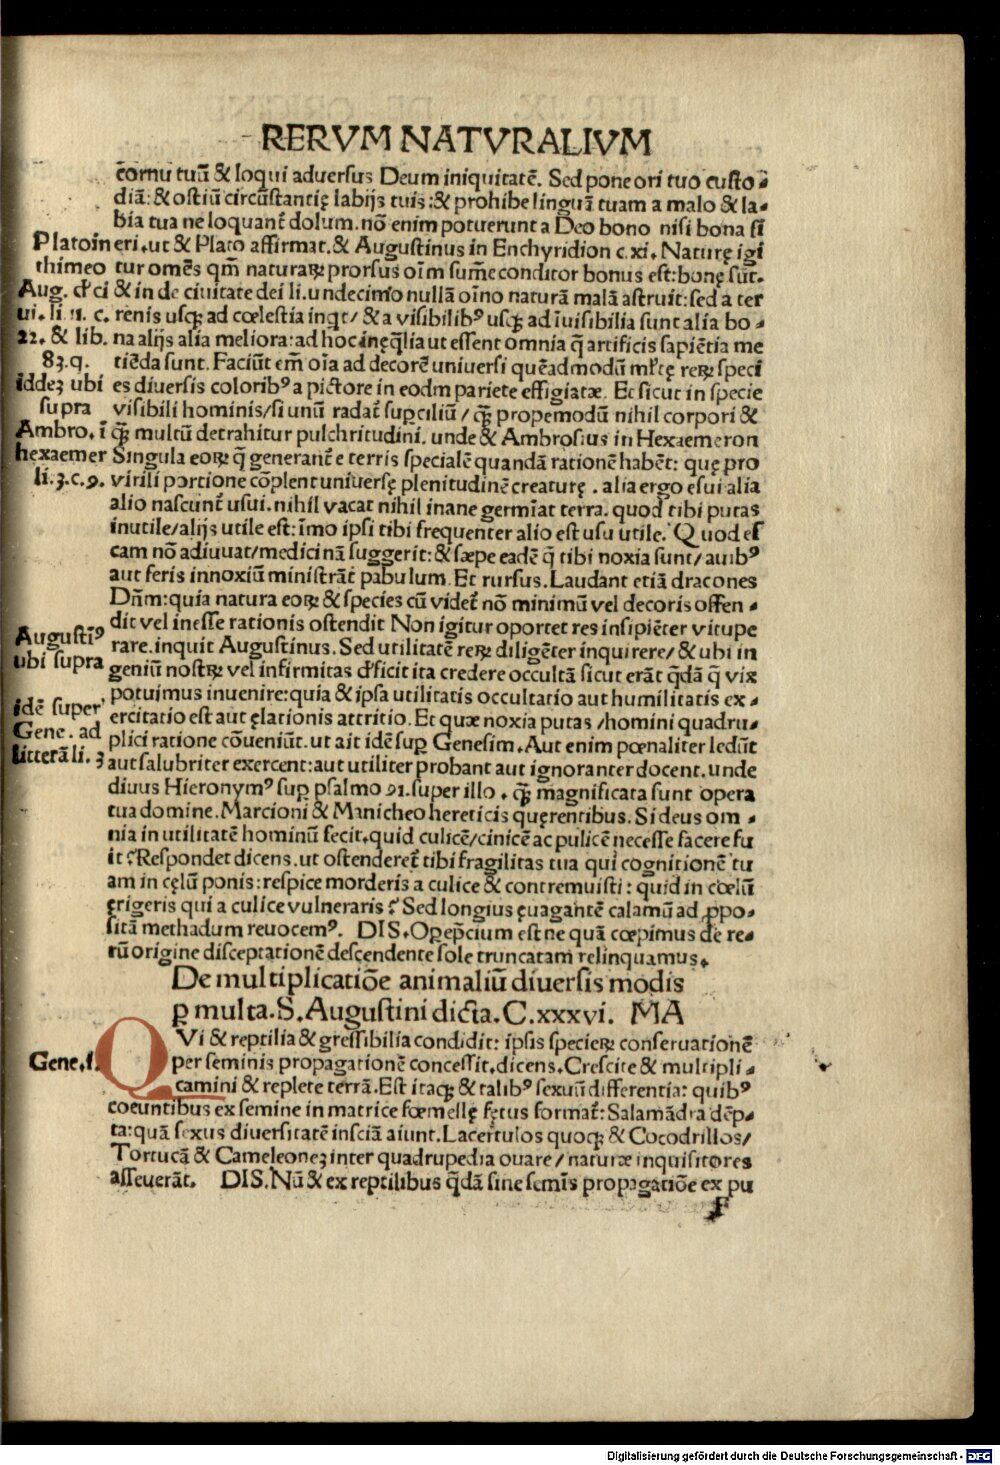 RERVM NATVRALIVM
cornu tuū & loqui adversus Deum iniquitatē. Sed pone ori tuo custo⸗
diā: & ostiū circūstantię labijs tuis: & prohibe linguā tuam a malo & la⸗
bia tua ne loquant̄ dolum. nō enim potuerunt a Deo bono nisi bona fi
Plato in eri. ut & Plato affirmat. & Augustinus in Enchyridion c. xi. Naturę igi
thimeo tur omēs qm̄ naturaꝝ prorsus oīm sum̄e conditor bonus est: bonę sūt.
Aug. d̓ ci & in de ciuitate dei li. undecimo nullā oīno naturā malā astruit: sed a ter
ui. li. 11. c. renis usqꝫ ad cœlestia inqt / & a visibilibꝰ usqꝫ ad īuisibilia sunt alia bo⸗
22. & lib. na alijs alia meliora: ad hoc inęq̄lia ut essent omnia q̄ artificis sapiētia me
83. q. tiēda sunt. Faciūt em̄ oīa ad decorē universi quēadmodū ml̓tę reꝝ speci
iddeꝫ ubi es diversis coloribꝰ a pictore in eodm pariete effigiatæ. Et sicut in specie
supra visibili hominis / si unū radat̄ suꝑciliū / qꝫ̄ propemodū nihil corpori &
Ambro. ī qꝫ̄ multū detrahitur pulchritudini. unde & Ambrosius in Hexaemeron
hexaemer Singula eoꝝ q̄ generant̄ e terris specialē quandā rationē habēt: quę pro
li. 3. c. 9. virili portione cōplent universę plenitudinē creaturę. alia ergo esui alia
alio nascunt̄ usui. nihil vacat nihil inane germīat terra. quod tibi putas
inutile / alijs utile est: īmo ipsi tibi frequenter alio est usu utile. Quod es
cam nō adiuuat / medicinā suggerit: & sæpe eadē q̄ tibi noxia sunt / auibꝰ
aut feris innoxiū ministrāt pabulum. Et rursus. Laudant etiā dracones
Dn̄m: quia natura eoꝝ & species cū videt̄ nō minimū vel decoris offen⸗
dit vel inesse rationis ostendit Non igitur oportet res insipiēter vitupe
Augustiꝰ rare. inquit Augustinus. Sed utilitatē reꝝ diligēter inquirere / & ubi in
ubi supra geniū nostꝝ vel infirmitas d̓ficit ita credere occultā sicut erāt q̄dā q̄ vix
potuimus invenire: quia & ipsa utilitatis occultatio aut humilitatis ex⸗
idē super ercitatio est aut ęlationis attritio. Et quæ noxia putas / homini quadru⸗
Gene. ad plici ratione cōveniūt. ut ait idē suꝑ Genesim. Aut enim pœnaliter ledūt
litterā li. 3 aut salubriter exercent: aut utiliter probant aut ignoranter docent. unde
divus Hieronymꝰ suꝑ psalmo 91. super illo. qꝫ̄ magnificata sunt opera
tua domine. Marcioni & Manicheo hereticis quęrentibus. Si deus om⸗
nia in utilitatē hominū fecit. quid culicē / cinicē ac pulicē necesse facere fu
it? Respondet dicens. ut ostenderet̄ tibi fragilitas tua qui cognitionē tu
am in cęlū ponis: respice morderis a culice & contremuisti: quid in cœlū
ęrigeris qui a culice vulneraris? Sed longius ęuagantē calamū ad ꝓpo⸗
sitā methadum revocemꝰ. DIS. Oꝑep̄cium est ne quā cœpimus de re⸗
rū origine disceptationē descendente sole truncatam relinquamus.
De multiplicatiōe animaliū diuersis modis
ꝑ multa. S. Augustini dicta. C. xxxvi. MA
QVi & reptilia & gressibilia condidit: ipsis specieꝝ conservationē
Gene. 1. per seminis propagationē concessit. dicens. Crescite & multipli⸗
camini & replete terrā. Est itaqꝫ & talibꝰ sexuū differentia: quibꝰ
coeuntibus ex semine in matrice fœmellę fętus format̄: Salamādra dēp⸗
ta: quā sexus diversitatē insciā aiunt. Lacertulos quoqꝫ & Cocodrillos /
Tortucā & Cameleoneꝫ inter quadrupedia ovare / naturæ inquisitores
asseverāt. DIS. Nū & ex reptilibus q̄dā sine semīs propagatiōe ex pu
F
Digitalisierung gefördert durch die Deutsche Forschungsgemeinschaft - DFG